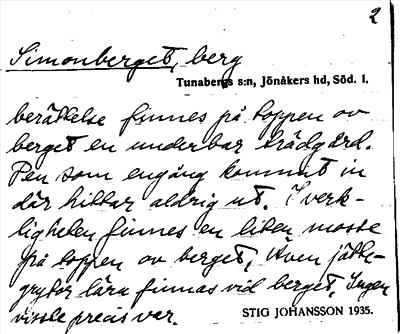 2
Simonberget, berg
Tunabergs s:n, Jönåkers hd, Söd. l.
berättelse finnes på toppen av
berget en underbar trädgård.
Den som engång kommit in
där hittar aldrig ut. I verk-
ligheten finnes en liten mosse
på toppen av berget, Även jätte-
grytor lära finnas vid berget, Ingen
visste precis var.
STIG JOHANSSON 1935.